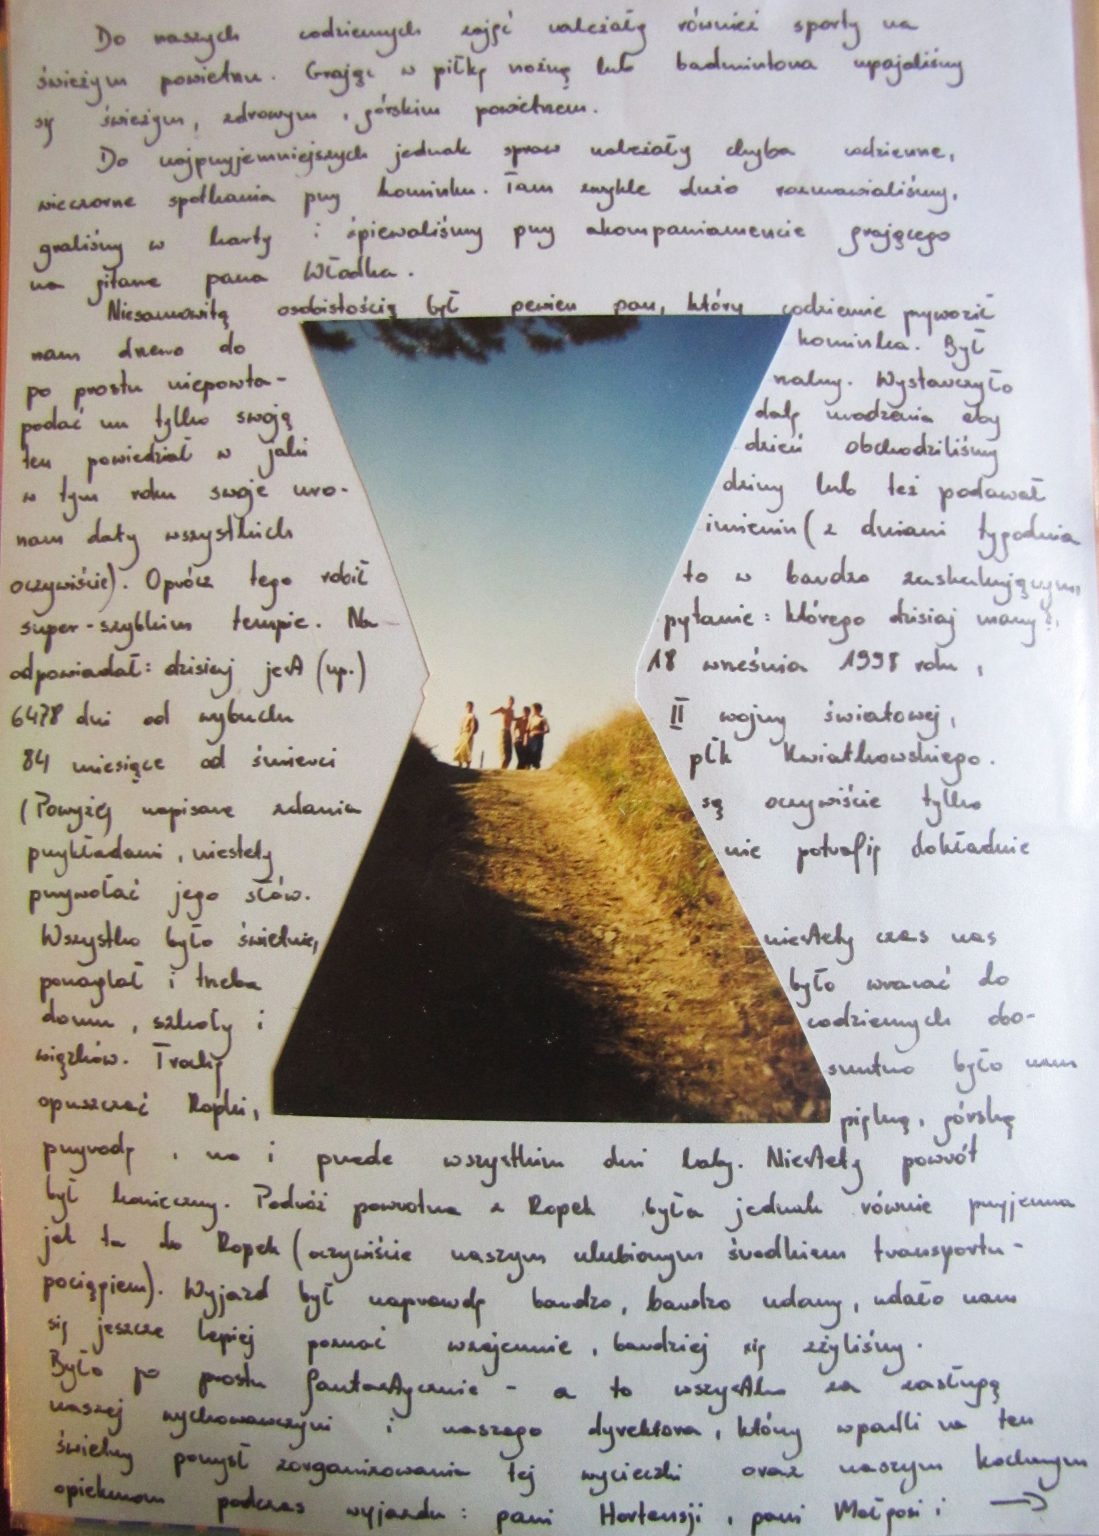 Do naszych codziennych zajęć należały również sporty na
świeżym powietrzu. Grając w piłkę nożną lub badmintona upajaliśmy
się świeżym, zdrowym, górskim powietrzem.
Do najprzyjemniejszych jednak spraw należały chyba codzienne,
wieczorne spotkania przy kominku. Tam zwykle dużo rozmawialiśmy,
graliśmy w karty i śpiewaliśmy przy akompaniamencie grającego
na gitarze pana Władka.
Niesamowitą osobistością był pewien pan, który codziennie przywoził
nam drewno do kominka. Był
po prostu niepowta- rzalny. Wystarczyło
podać mu tylko swoją datę urodzenia aby
ten powiedział w jaki dzień obchodziliśmy
w tym roku swoje uro- dziny lub też podawał
nam daty wszystkich imienin (z dniami tygodnia
oczywiście). Oprócz tego robił to w bardzo zaskakującym,
super-szybkim tempie. Na pytanie: którego dzisiaj mamy?,
odpowiadał: dzisiaj jest (np.) 18 września 1998 roku,
6478 dni od wybuchu II wojny światowej,
84 miesiące od śmierci płk Kwiatkowskiego.
(Powyżej napisane zdania są oczywiście tylko
przykładami, niestety nie potrafię dokładnie
przywołać jego słów.
Wszystko było świetnie, niestety czas nas
ponaglał i trzeba było wracać do
domu, szkoły i codziennych obo-
wiązków. Trochę smutno było nam
opuszczać Ropki, piękną, górską
przyrodę, no i przede wszystkim dni laby. Niestety powrót
był konieczny. Podróż powrotna z Ropek była jednak równie przyjemna
jak ta do Ropek (oczywiście naszym ulubionym środkiem transportu-
pociągiem). Wyjazd był naprawdę bardzo, bardzo udany, udało nam
się jeszcze lepiej poznać wzajemnie, bardziej się zżyliśmy.
Było po prostu fantastycznie - a to wszystko za zasługą
naszej wychowawczyni i naszego dyrektora, którzy wpadli na ten
świetny pomysł zorganizowania tej wycieczki oraz naszym kochanym
opiekunom podczas wyjazdu: pani Hortensji, pani Małgosi i →